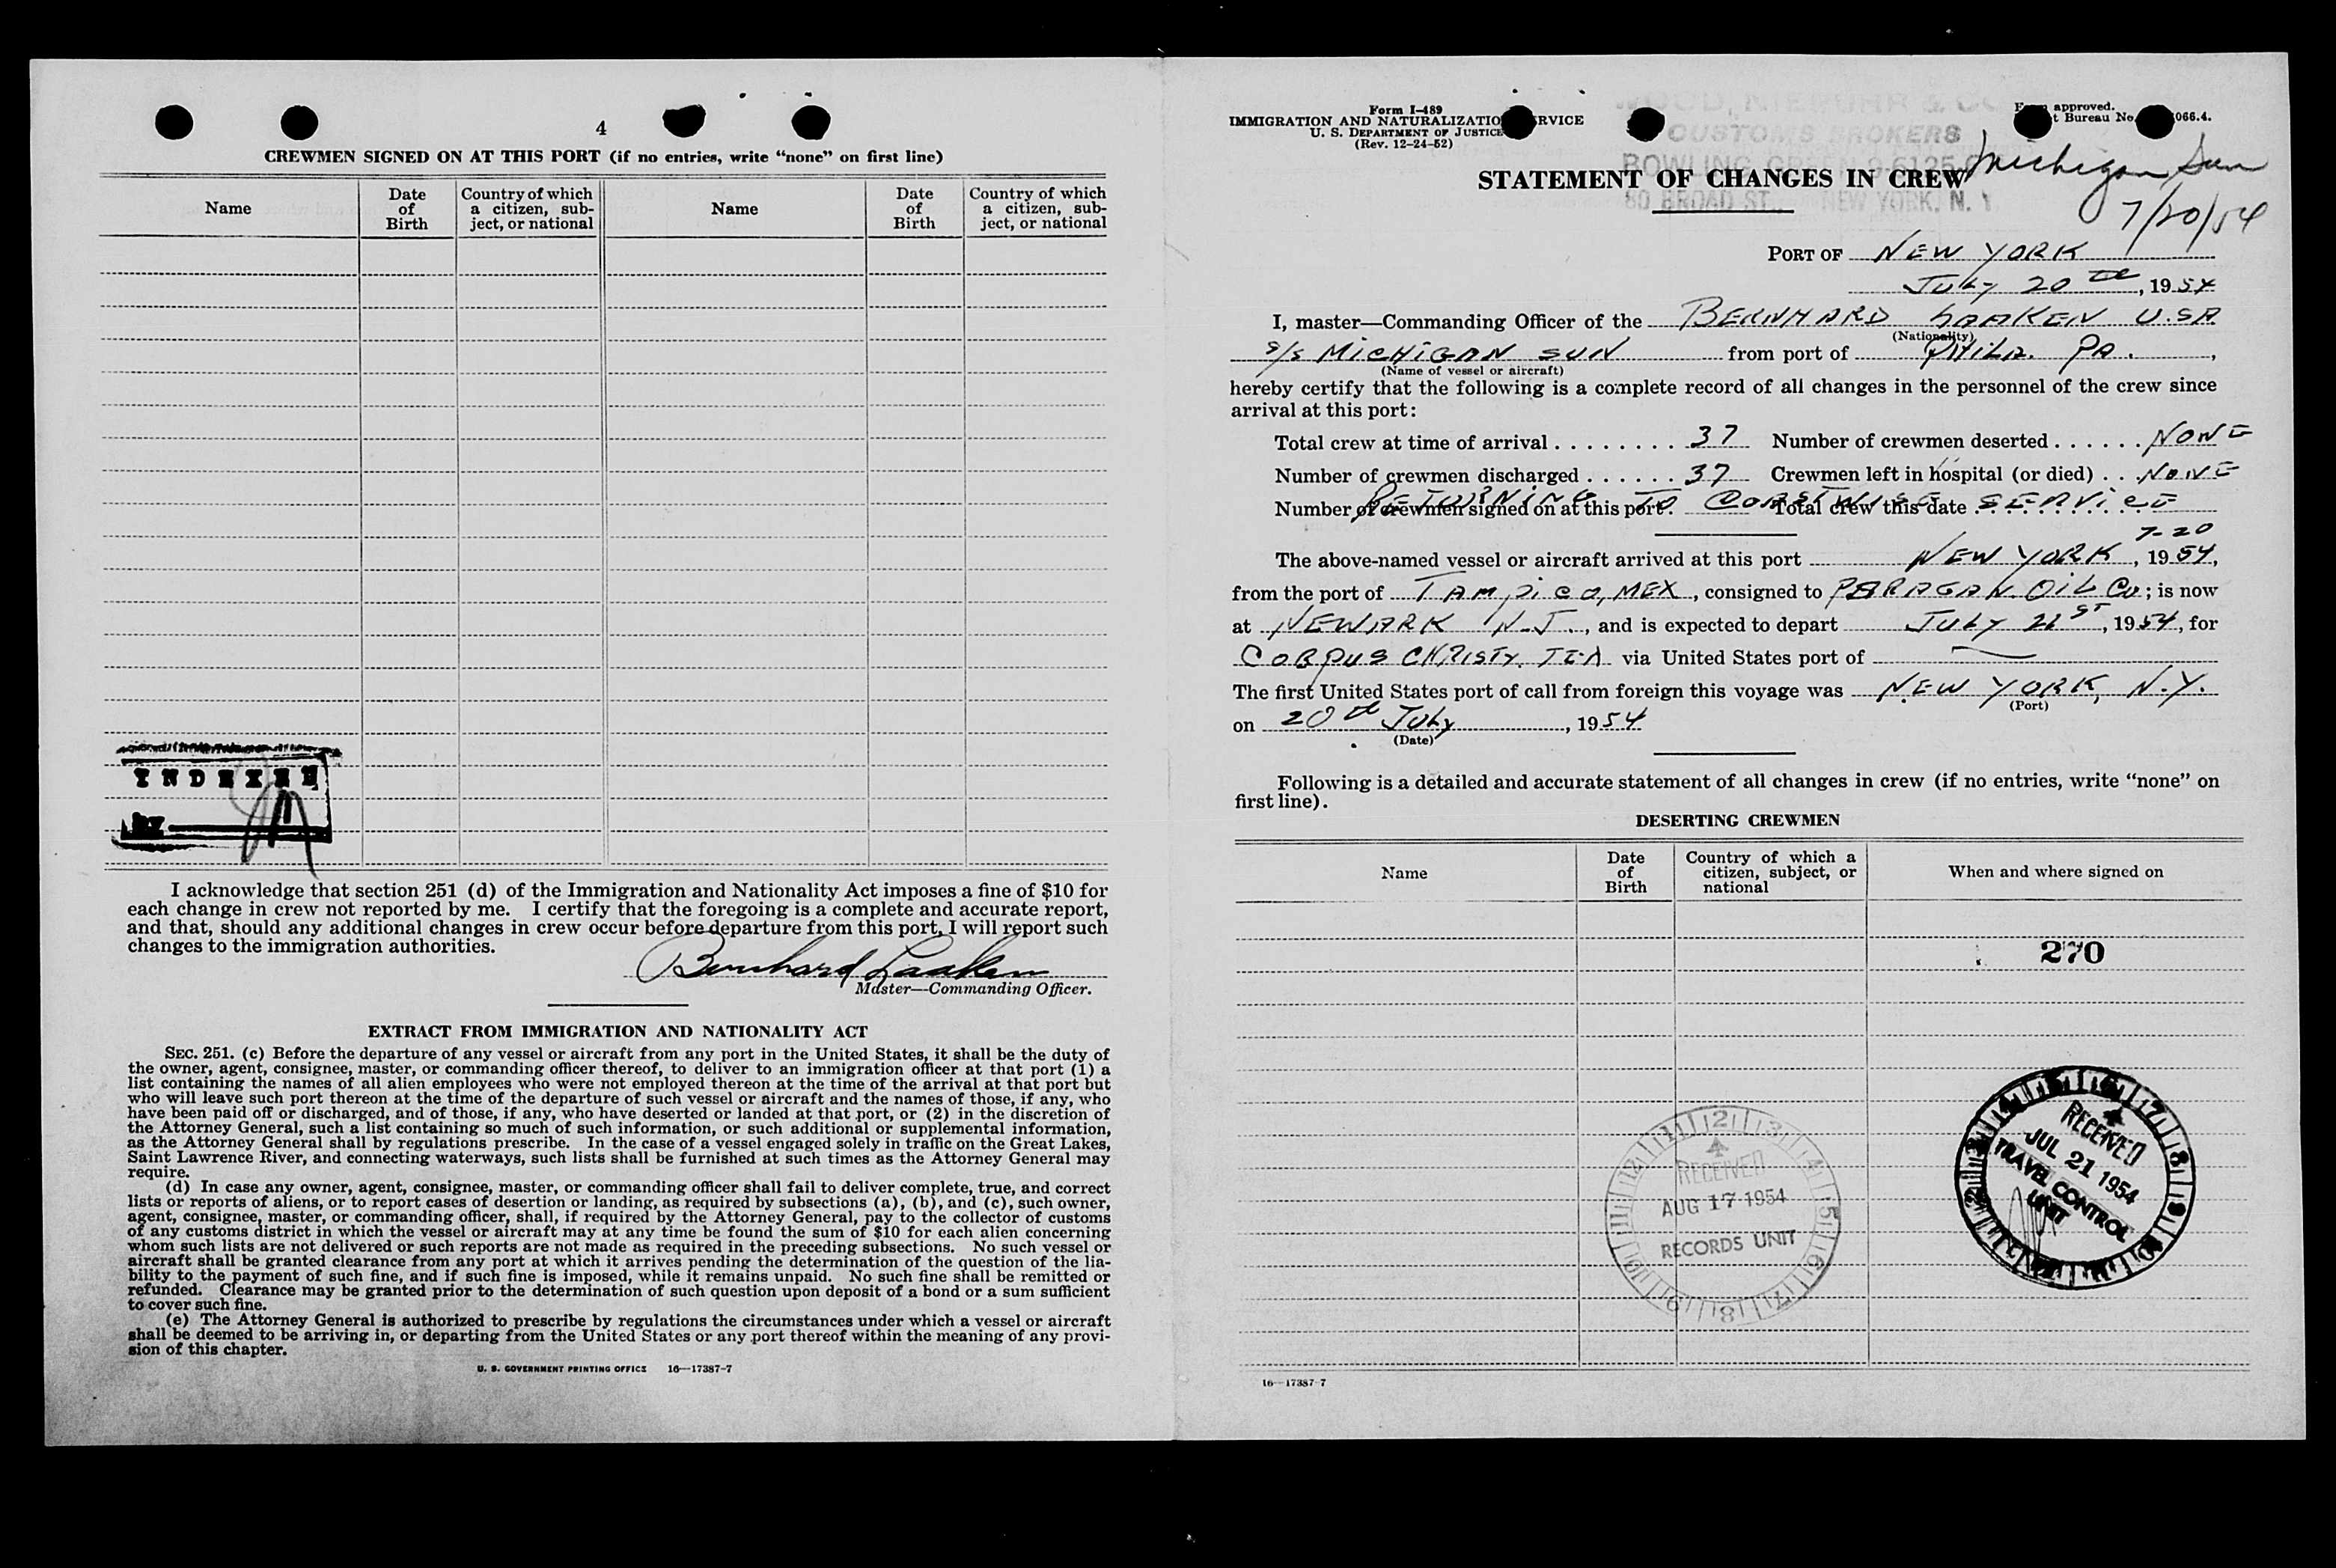 4
CREWMEN SIGNED ON AT THIS PORT (if no entries, write “none” on first line)
Name
Date of Birth
Country of which a citizen, sub-ject, or national
Name
Date of Birth
Country of which a citizen, sub-ject, or national
INDEXED
BY
I acknowledge that section 251 (d) of the Immigration and Nationality Act imposes a fine of $10 for
each change in crew not reported by me. I certify that the foregoing is a complete and accurate report,
and that, should any additional changes in crew occur before departure from this port, I will report such
changes to the immigration authorities.
Bernhard Laaken
Master—Commanding Officer.
EXTRACT FROM IMMIGRATION AND NATIONALITY ACT
SEC. 251. (c) Before the departure of any vessel or aircraft from any port in the United States, it shall be the duty of
the owner, agent, consignee, master, or commanding officer thereof, to deliver to an immigration officer at that port (1) a
list containing the names of all alien employees who were not employed thereon at the time of the arrival at that port but
who will leave such port thereon at the time of the departure of such vessel or aircraft and the names of those, if any, who
have been paid off or discharged, and of those, if any, who have deserted or landed at that port, or (2) in the discretion of
the Attorney General, such a list containing so much of such information, or such additional or supplemental information,
as the Attorney General shall by regulations prescribe. In the case of a vessel engaged solely in traffic on the Great Lakes,
Saint Lawrence River, and connecting waterways, such lists shall be furnished at such times as the Attorney General may
require.
(d) In case any owner, agent, consignee, master, or commanding officer shall fail to deliver complete, true, and correct
lists or reports of aliens, or to report cases of desertion or landing, as required by subsections (a), (b), and (c), such owner,
agent, consignee, master, or commanding officer, shall, if required by the Attorney General, pay to the collector of customs
of any customs district in which the vessel or aircraft may at any time be found the sum of $10 for each alien concerning
whom such lists are not delivered or such reports are not made as required in the preceding subsections. No such vessel or
aircraft shall be granted clearance from any port at which it arrives pending the determination of the question of the lia-
bility to the payment of such fine, and if such fine is imposed, while it remains unpaid. No such fine shall be remitted or
refunded. Clearance may be granted prior to the determination of such question upon deposit of a bond or a sum sufficient
to cover such fine.
(e) The Attorney General is authorized to prescribe by regulations the circumstances under which a vessel or aircraft
shall be deemed to be arriving in, or departing from the United States or any port thereof within the meaning of any provi-
sion of this chapter.
U. S. GOVERNMENT PRINTING OFFICE 16—17387-7
Form I-489
IMMIGRATION AND NATURALIZATIO RVICE
U. S. DEPARTMENT OF JUSTICE
(Rev. 12-24-52)
approved.
t Bureau No. 066.4.
CUSTOMS BROKERS
BOWLING GREEN 9-6125
80 BROAD ST., NEW YORK, N. Y.
Michigan Sun
7/20/54
STATEMENT OF CHANGES IN CREW
PORT OF NEW YORK
July 20th, 1954
I, master—Commanding Officer of the BERNHARD LAAKEN U.S.A
(Nationality)
S/S MICHIGAN SUN from port of PHILA. PA.,
(Name of vessel or aircraft)
hereby certify that the following is a complete record of all changes in the personnel of the crew since
arrival at this port:
Total crew at time of arrival . . . . . . . . 37 Number of crewmen deserted . . . . . . NONE
Number of crewmen discharged . . . . . . 37 Crewmen left in hospital (or died) . . NONE
Number of crewmen signed on at this port. Total crew this date
RETURNING TO COASTWISE SERVICE
7-20
The above-named vessel or aircraft arrived at this port NEW YORK, 1954,
from the port of TAMPICO, MEX, consigned to PARAGAN OIL Co; is now
at NEWARK N.J., and is expected to depart JULY 21ST, 1954, for
CORPUS CHRISTY, TEX via United States port of —
The first United States port of call from foreign this voyage was NEW YORK, N.Y.
(Port)
on 20th July, 1954
(Date)
Following is a detailed and accurate statement of all changes in crew (if no entries, write “none” on
first line).
DESERTING CREWMEN
Name
Date of Birth
Country of which a citizen, subject, or national
When and where signed on
270
RECEIVED
AUG 17 1954
RECORDS UNIT
RECEIVED
JUL 21 1954
TRAVEL CONTROL
UNIT
16—17387-7